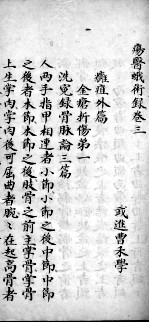 瘍醫蛾術錄卷三
或進曹禾學
癰疽外篇
金瘡折傷第一
洗冤錄骨脉論三篇
人兩手指甲相連者小節小節之後中節中節
之後者本節本節之後肢骨之前主掌骨掌骨
上生掌肉掌肉後可屈曲者腕腕左起高骨者